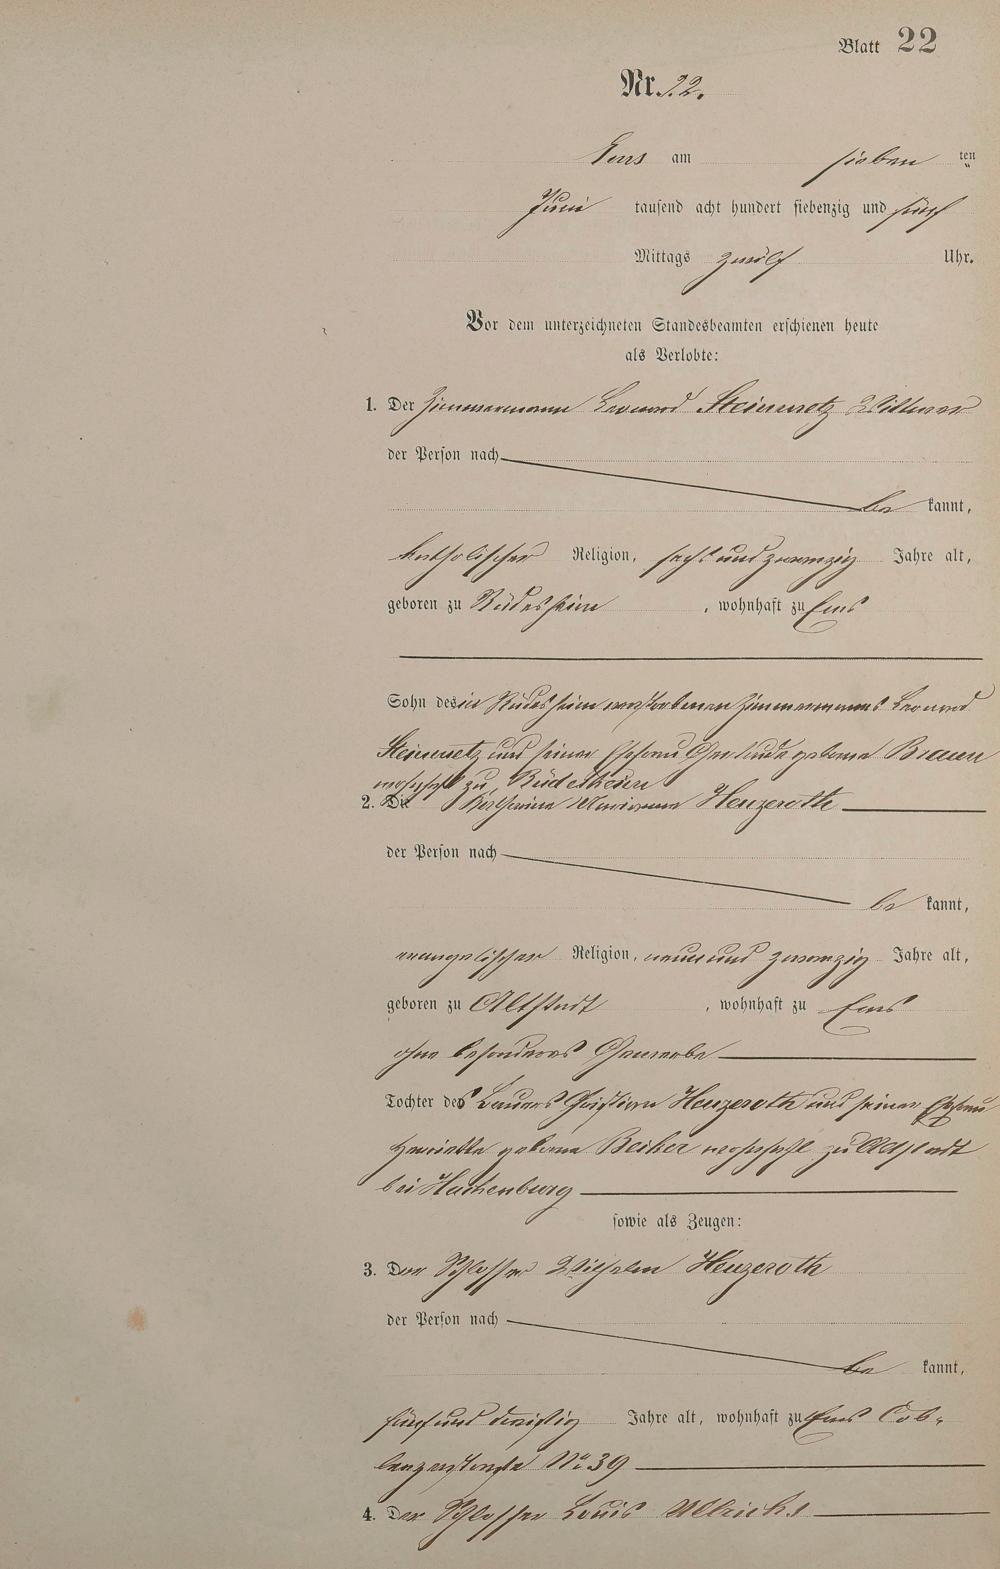 Blatt 22
Nr. 22.
Ems am sieben ten
Juni tausend acht hundert siebenzig und fünf
Mittags zwölf Uhr.
Vor dem unterzeichneten Standesbeamten erschienen heute
als Verlobte:
1. Der Zimmermann Leonard Steinmetz Wittwer
der Person nach
be kannt,
katholischer Religion, sechs und zwanzig Jahre alt,
geboren zu Rüdesheim, wohnhaft zu Ems
Sohn des in Rüdesheim verstorbenen Zimmermanns Leonard
Steinmetz und seiner Ehefrau Gertrude geborene Braun
wohnhaft zu Rüdesheim
2. Die Katharine Mariane Henzeroth
der Person nach
be kannt,
evangelischer Religion, neun und zwanzig Jahre alt,
geboren zu Altstadt, wohnhaft zu Ems
ohne besonderes Gewerbe
Tochter des Bauers Christian Henzeroth und seiner Ehefrau
Henriette geborene Becker wohnhaft zu Altstadt
bei Hachenburg
sowie als Zeugen:
3. Der Schlosser Wilhelm Henzeroth
der Person nach
be kannt,
fünf und dreißig Jahre alt, wohnhaft zu Ems Cob-
lenzerstraße No 39
4. Der Schlosser Louis Ullrichs